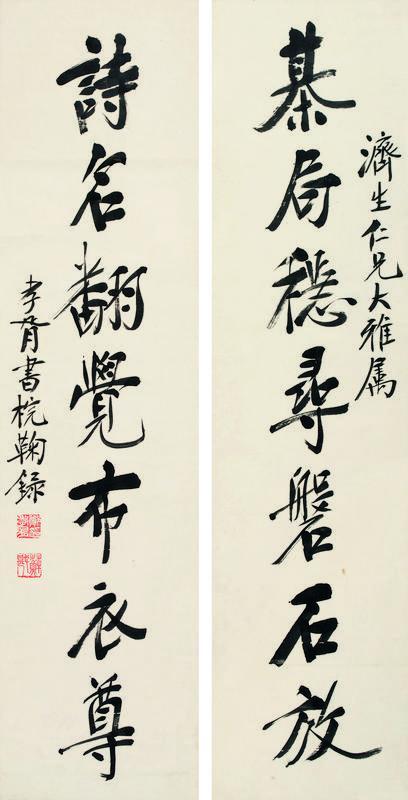 濟生仁兄大雅属
棊局穩尋磐石放
詩名翻覺布衣尊
孝胥書梡鞠録